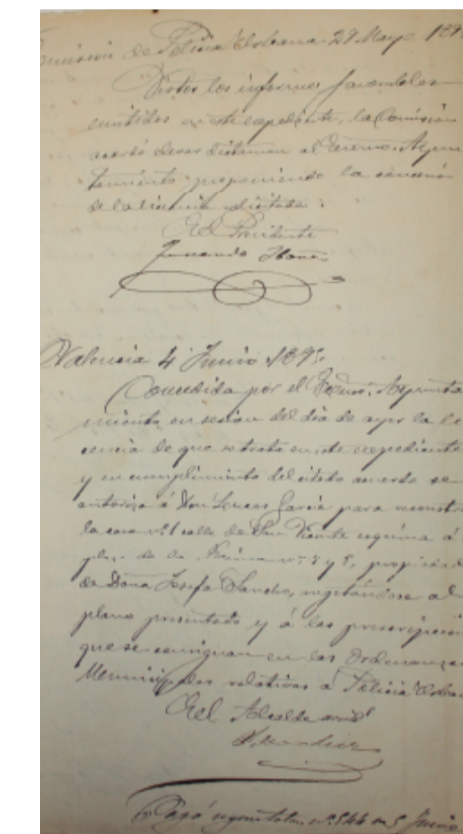 Comisión de Policía Urbana 29 Mayo 189
Vistos los informes favorables
emitidos en este expediente, la Comisión
acordó elevar dictamen al Excmo. Ayun
tamiento proponiendo la concesión
de la licencia solicitada.
El Presidente
Fernando Ibañez
Valencia 4 Junio 1895.
Concedida por el Excmo. Ayunta
miento en sesión del dia de ayer la li
cencia de que se trata en este expediente
y en cumplimiento del citado acuerdo se
autoriza á Don Lucas García para reconstru
la casa nº 1 calle de San Vicente esquina á
plaza de la nº 8 y 9, propiedad
de Doña Josefa Sancho, sujetándose al
plano presentado y á las prescripcion
que se consignan en las Ordenanzas
Municipales relativas á Policía Urban
El Alcalde
Pagó nº 544 en 5 Junio